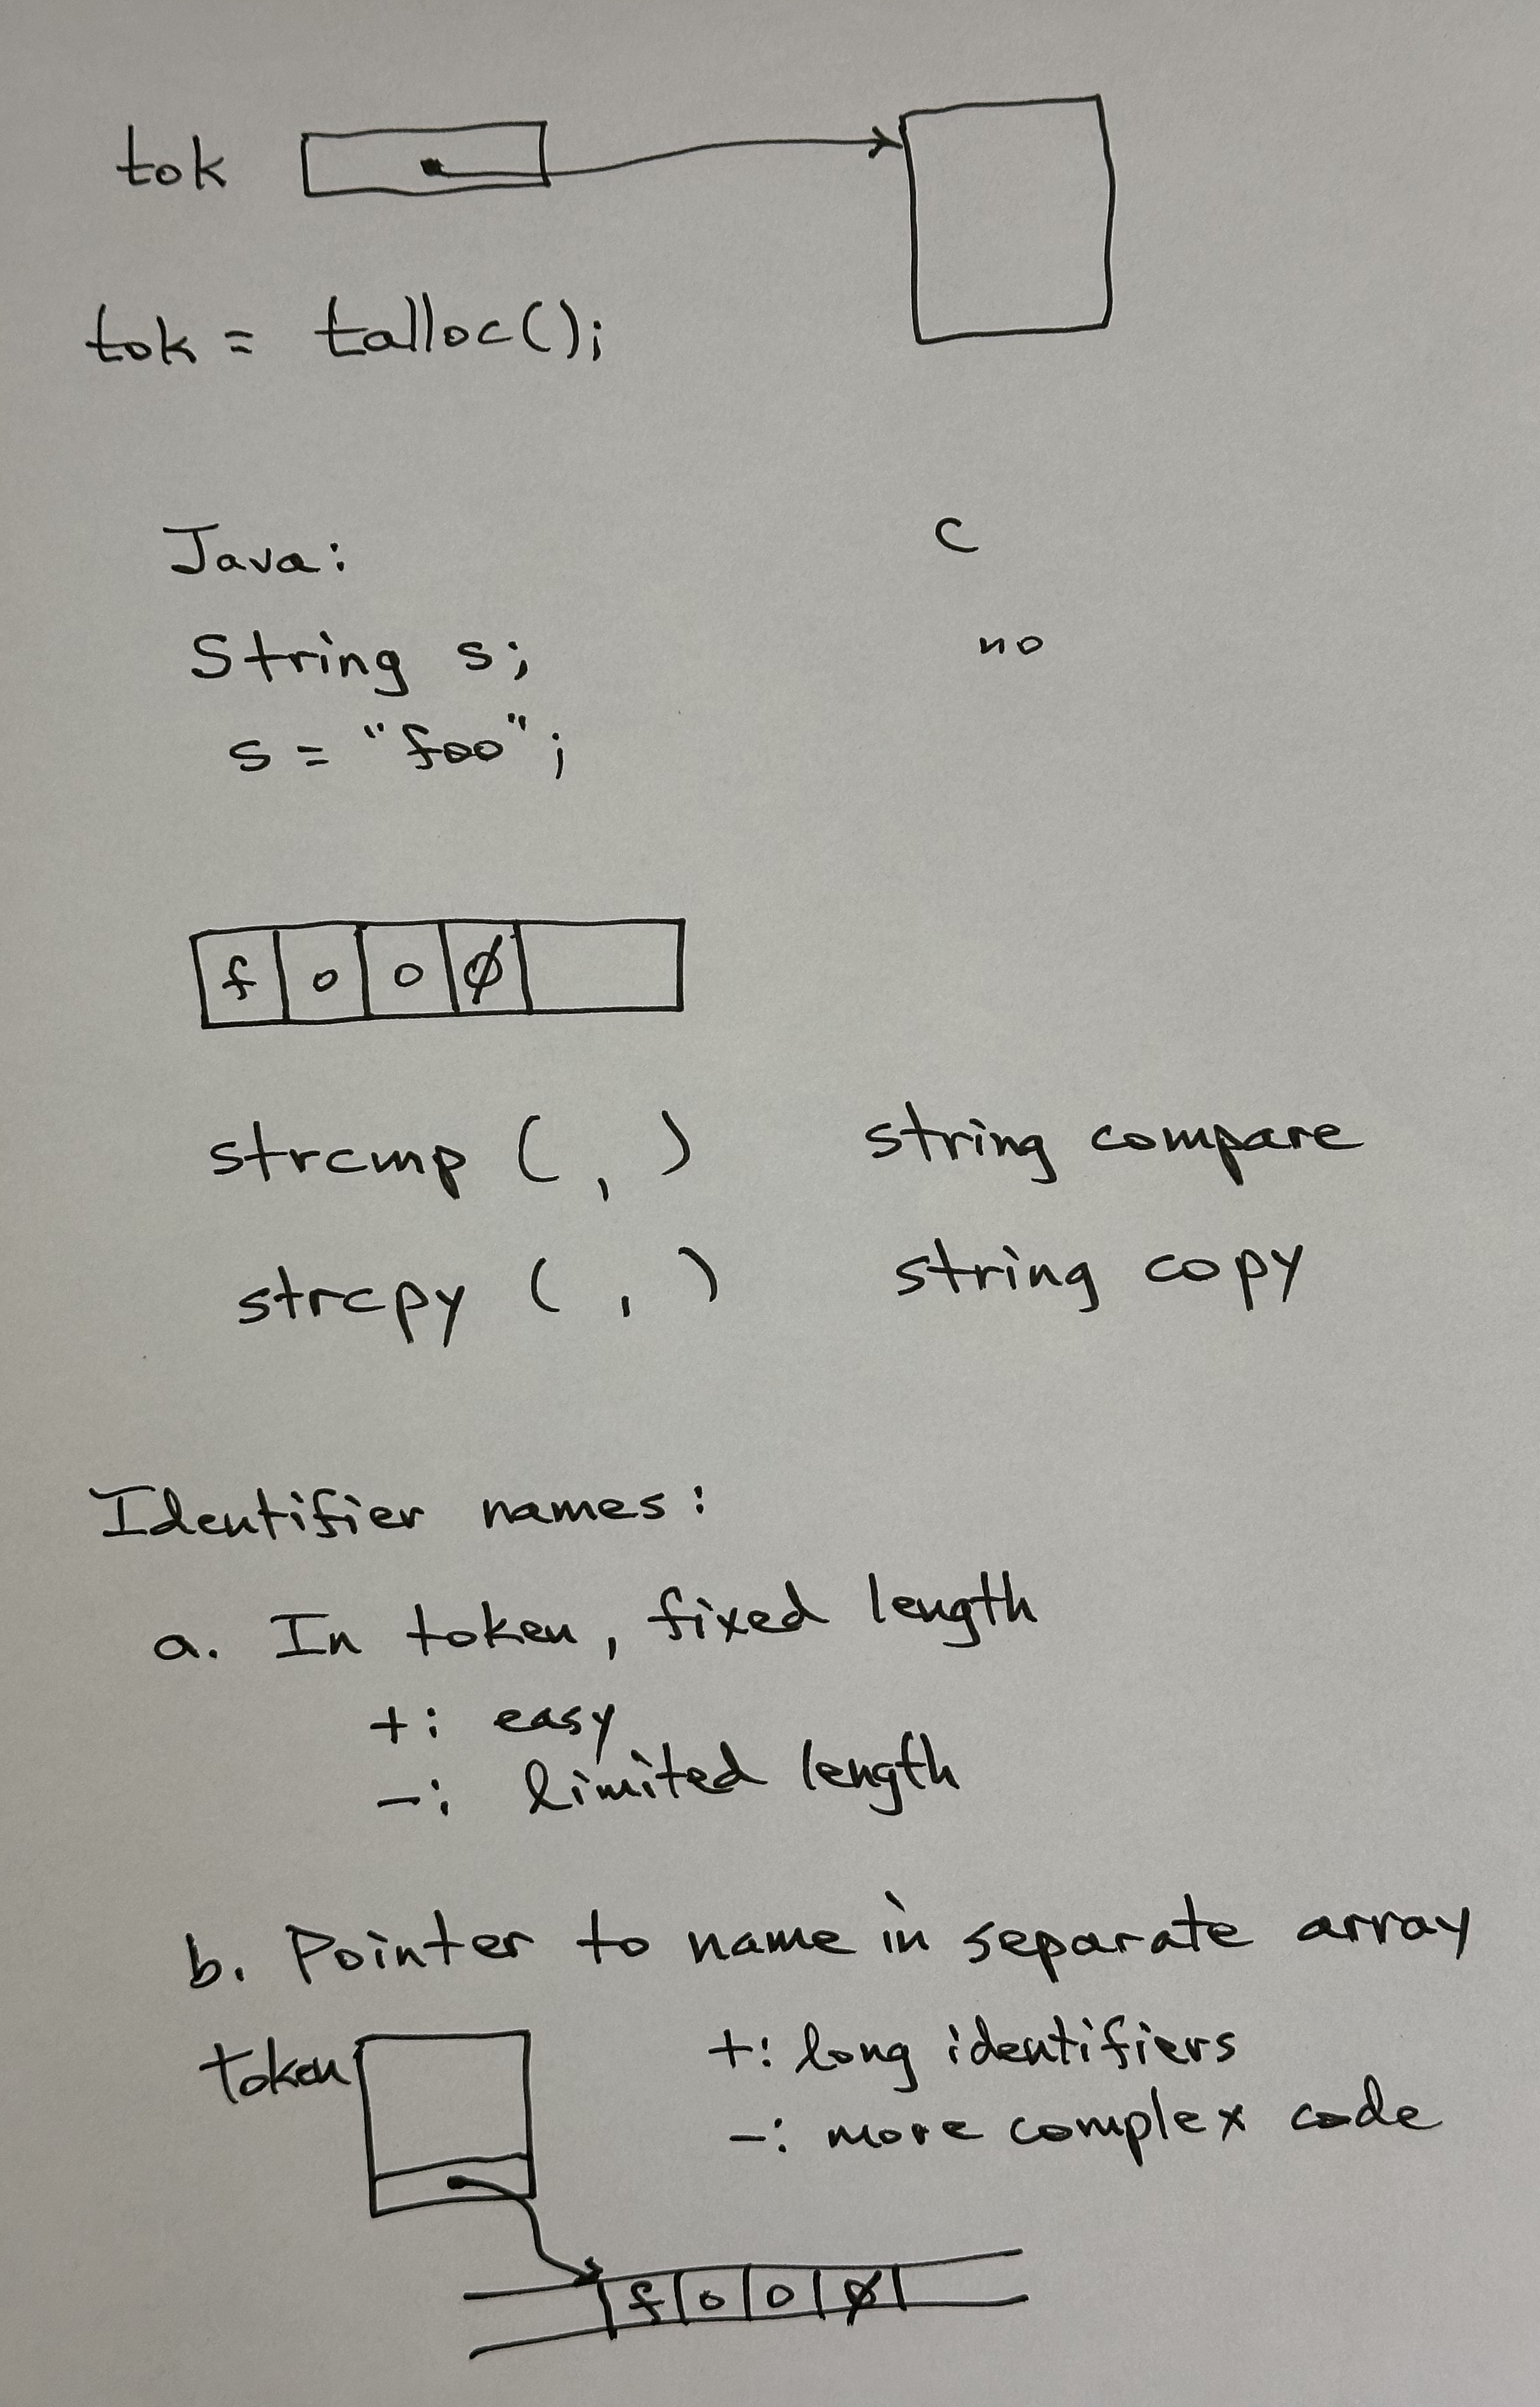 tok
tok = talloc();
Java: C
String s; no
s = "foo";
f o o Ø
strcmp ( , ) string compare
strcpy ( , ) string copy
Identifier names:
a. In token, fixed length
+: easy
-: limited length
b. Pointer to name in separate array
token +: long identifiers
-: more complex code
f o o Ø